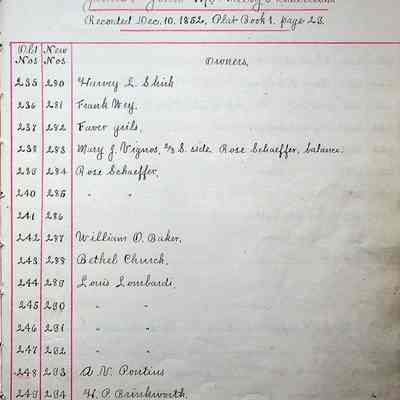 Recorded Dec. 10. 1852, Plat Book 1. page 28.
Old Nos New Nos Owners,
235 280 Harvey L. Shick
236 281 Frank Wey.
237 282 Faver girls,
238 283 Mary J. Vignos, 2/3 S. side Rose Schaeffer, balance.
239 284 Rose Schaeffer,
240 285 " "
241 286
242 287 William D. Baker,
243 288 Bethel Church,
244 289 Louis Lombardi,
245 290 " "
246 291 " "
247 292 " "
248 293 A. V. Pontius
249 294 H. P. Brinkworth.